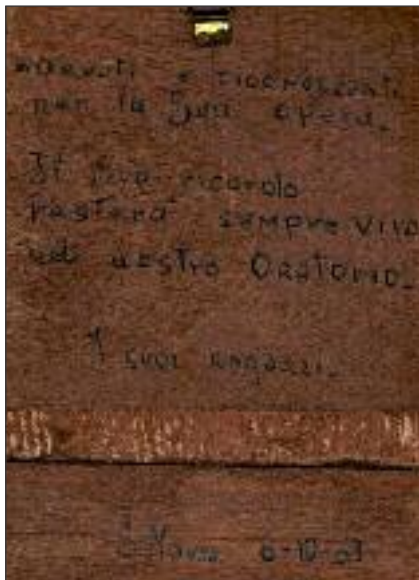 e riconoscenti
per la Sua opera.
Il suo ricordo
resterà sempre vivo
nel nostro Oratorio.
I suoi ragazzi.